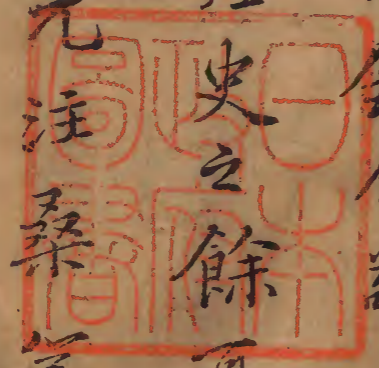 史之餘
元注桑
日本
政府
圖書